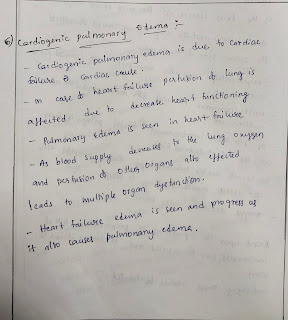 6) Cardiogenic pulmonary edema :-
- Cardiogenic pulmonary edema is due to cardiac
failure & cardiac cause.
- In case of heart failure perfusion of lung is
affected due to decrease heart functioning
- Pulmonary edema is seen in heart failure
- As blood supply decreases to the lung oxygen
and perfusion of other organs also effected
leads to multiple organ dysfunction.
- Heart failure edema is seen and progress as
it also causes pulmonary edema.